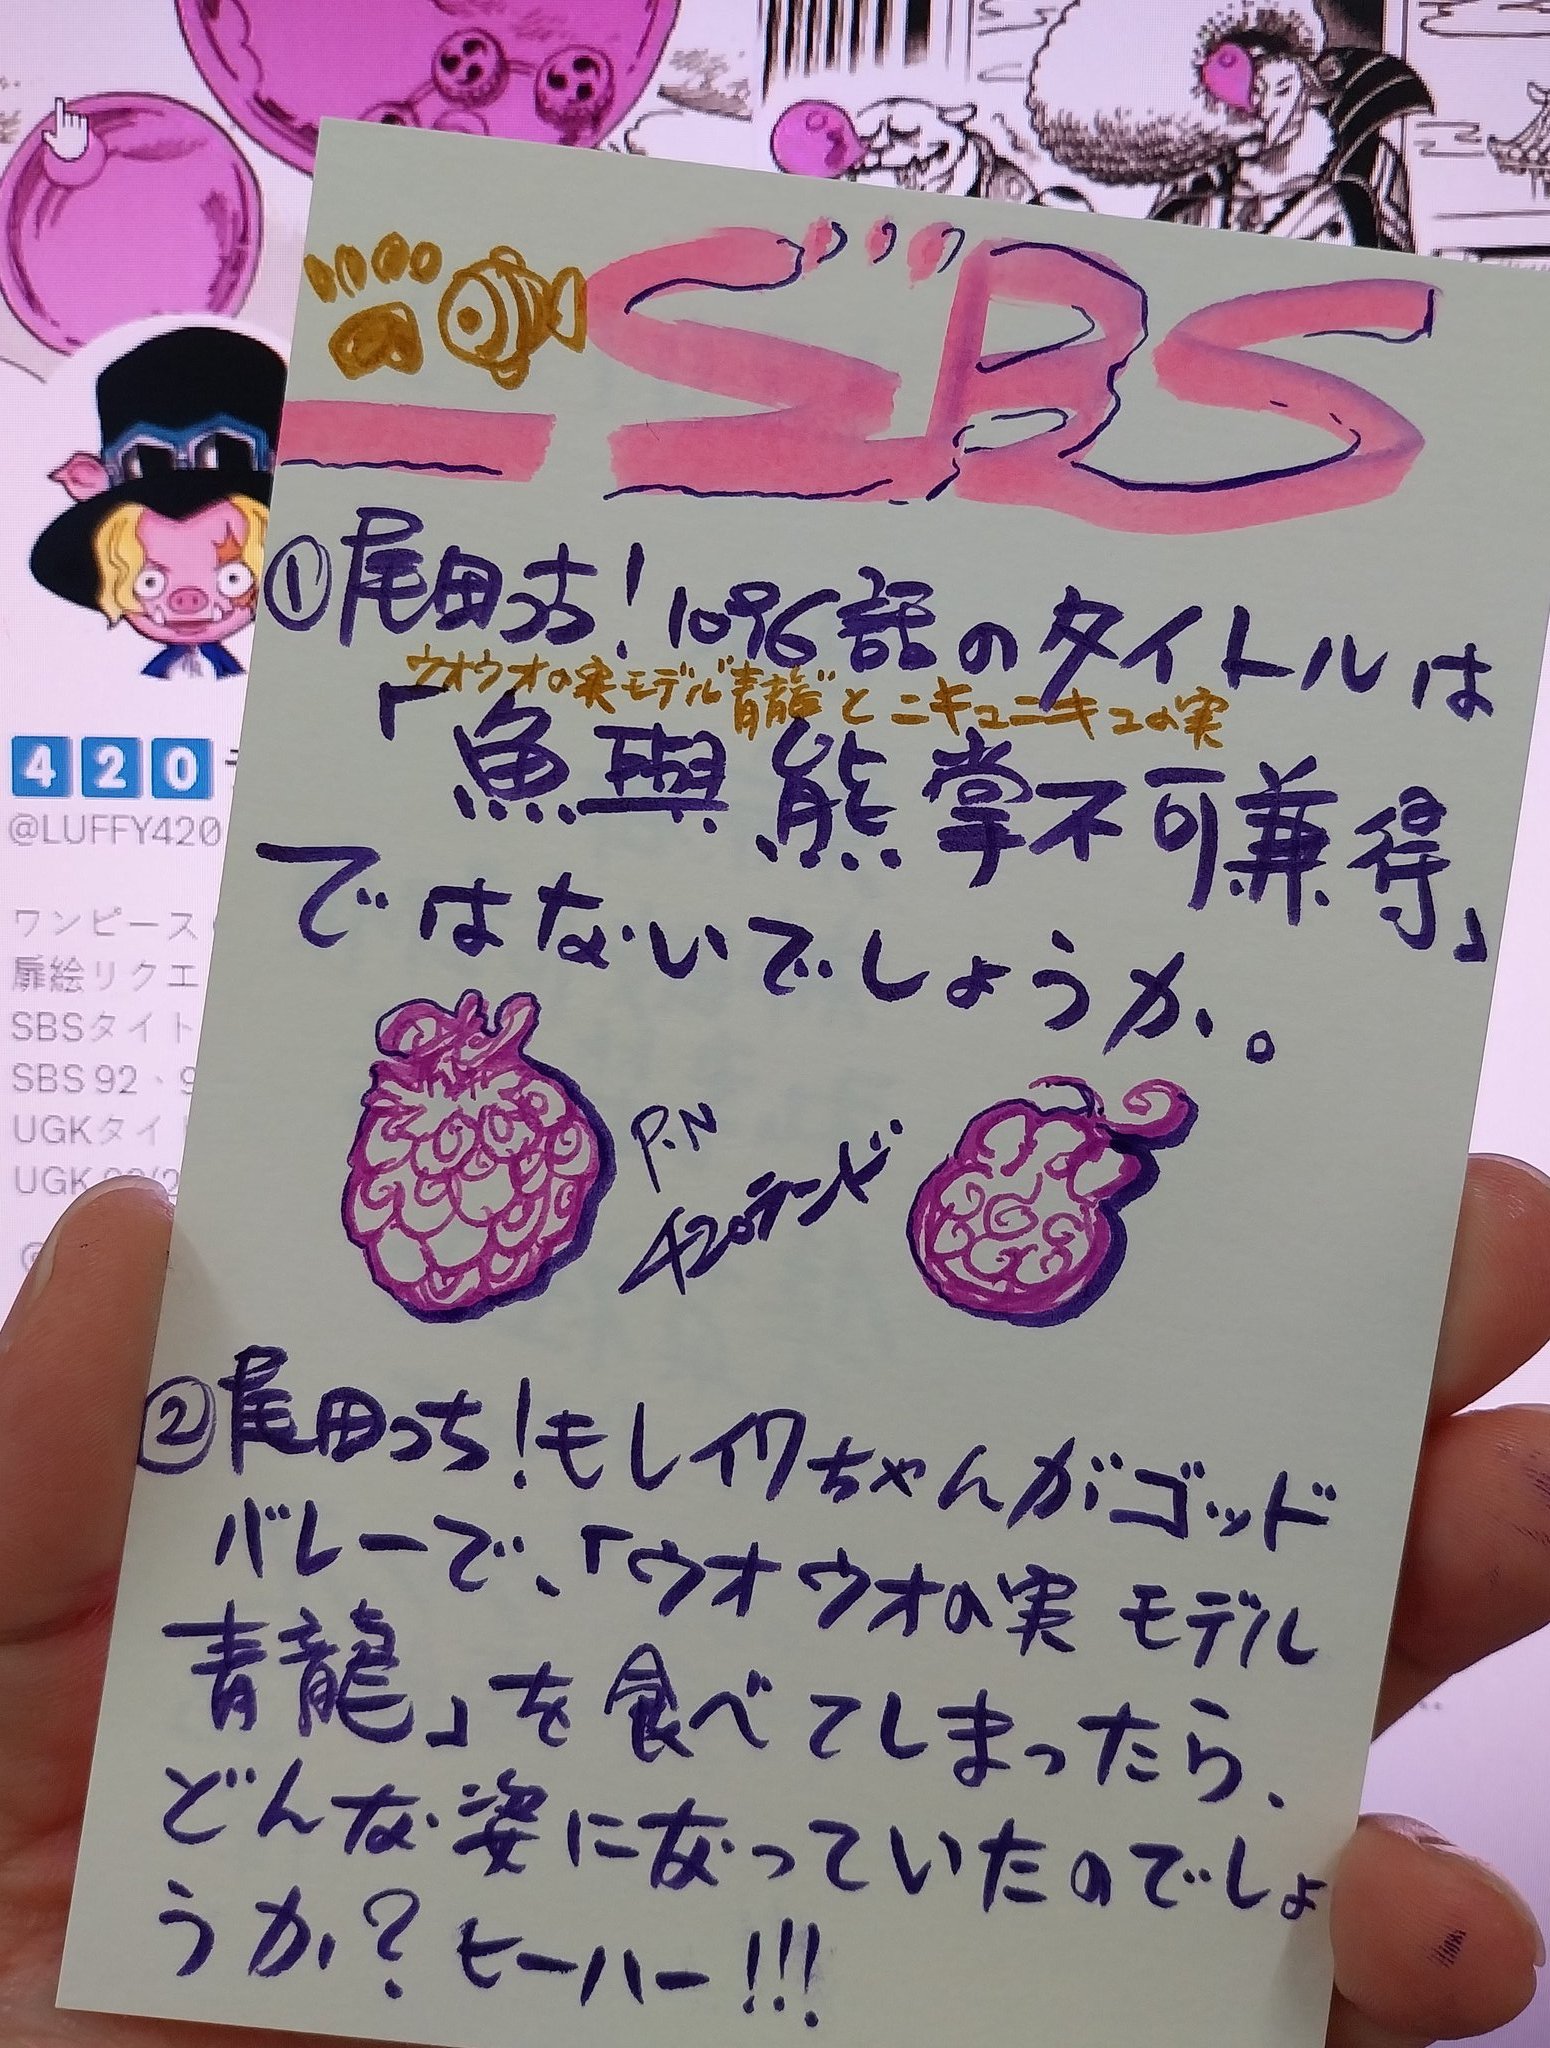 SBS
①尾田っち!1096話のタイトルは
ウオウオの実モデル"青龍"とニキュニキュの実
「魚與熊掌不可兼得」
ではないでしょうか。
P.N
420ランド
②尾田っち!もしイワちゃんがゴッド
バレーで、「ウオウオの実 モデル
青龍」を食べてしまったら、
どんな姿になっていたのでしょ
うか?ヒーハー!!!
420
@LUFFY420
ワンピース
扉絵リクエ
SBSタイト
SBS 92、9
UGKタイト
UGK